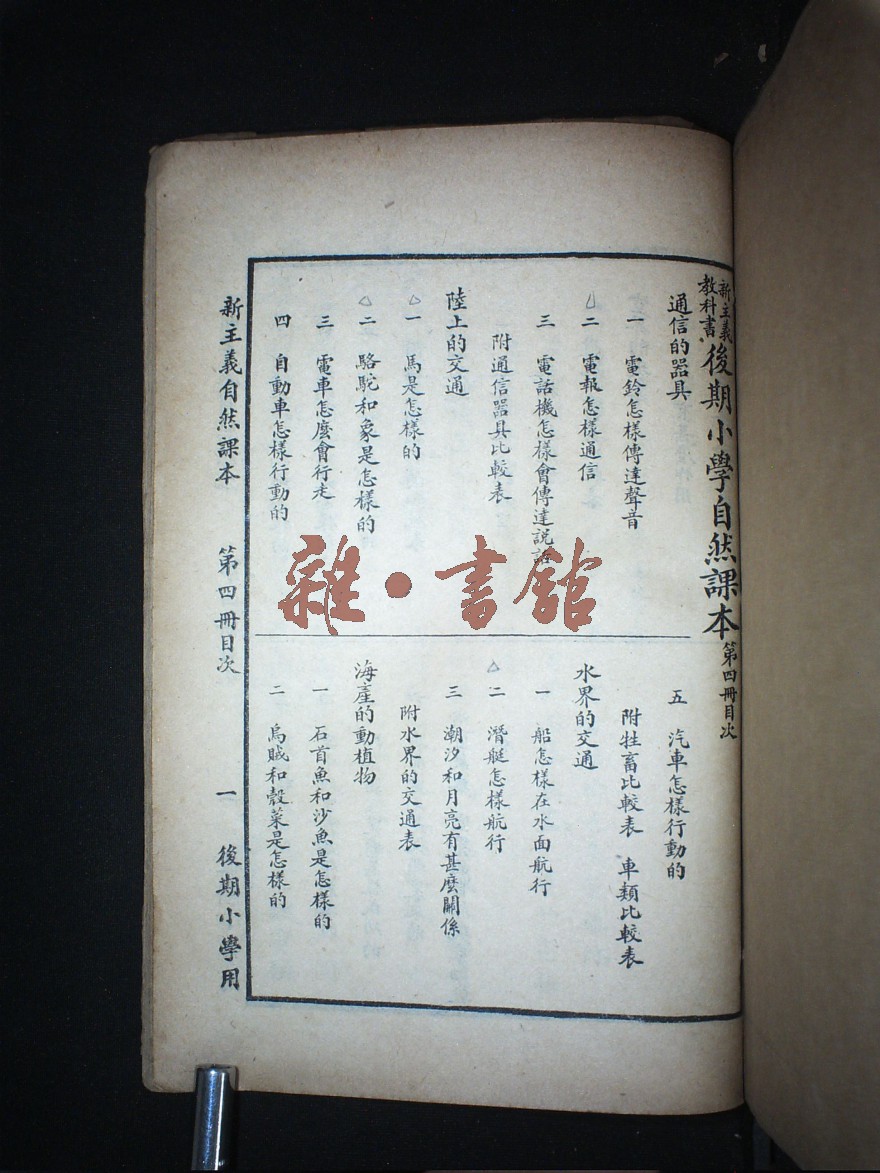 新主義教科書 後期小學自然課本 第四冊目次
通信的器具
一 電鈴怎樣傳達聲音
△二 電報怎樣通信
三 電話機怎樣會傳達説話
附通信器具比較表
陸上的交通
△一 馬是怎樣的
△二 駱駝和象是怎樣的
三 電車怎麼會行走
四 自動車怎樣行動的
五 汽車怎樣行動的
附牲畜比較表 車類比較表
水界的交通
一 船怎樣在水面航行
△二 潛艇怎樣航行
三 潮汐和月亮有甚麼關係
附水界的交通表
海產的動植物
一 石首魚和沙魚是怎樣的
二 烏賊和殼菜是怎樣的
新主義自然課本 第四冊目次 一 後期小學用
雜·書館